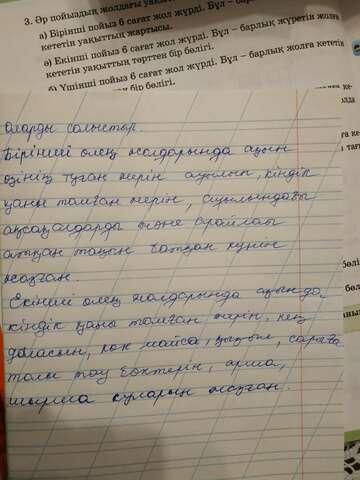 3. Әр пойыздың жолдағы уақы
а) Бірінші пойыз 6 сағат жол жүрді. Бұл – барлық жүретін жолға
кететін уақыттың жартысы.
ә) Екінші пойыз 6 сағат жол жүрді. Бұл – барлық жолға кететін
кететін уақыттың төрттен бір бөлігі.
б) Үшінші пойыз 6 сағат жол жүрді. Бұл – барлық жолға
ден бір бөлігі.
Оларды салыстыр.
Бірінші өлең жолдарында ақын
өзінің туған жерін аңсап, кіндік
қаны тамған жерін, ауылындағы
ақсақалдарды және арайлап
атқан таңын батқан күнін
жазған.
Екінші өлең жолдарында ақында
кіндік қаны тамған жерін, кең
даласын, көк майса, қызыл, сарыға
толы тау бөктерін, арша,
шырша құларын жазған.